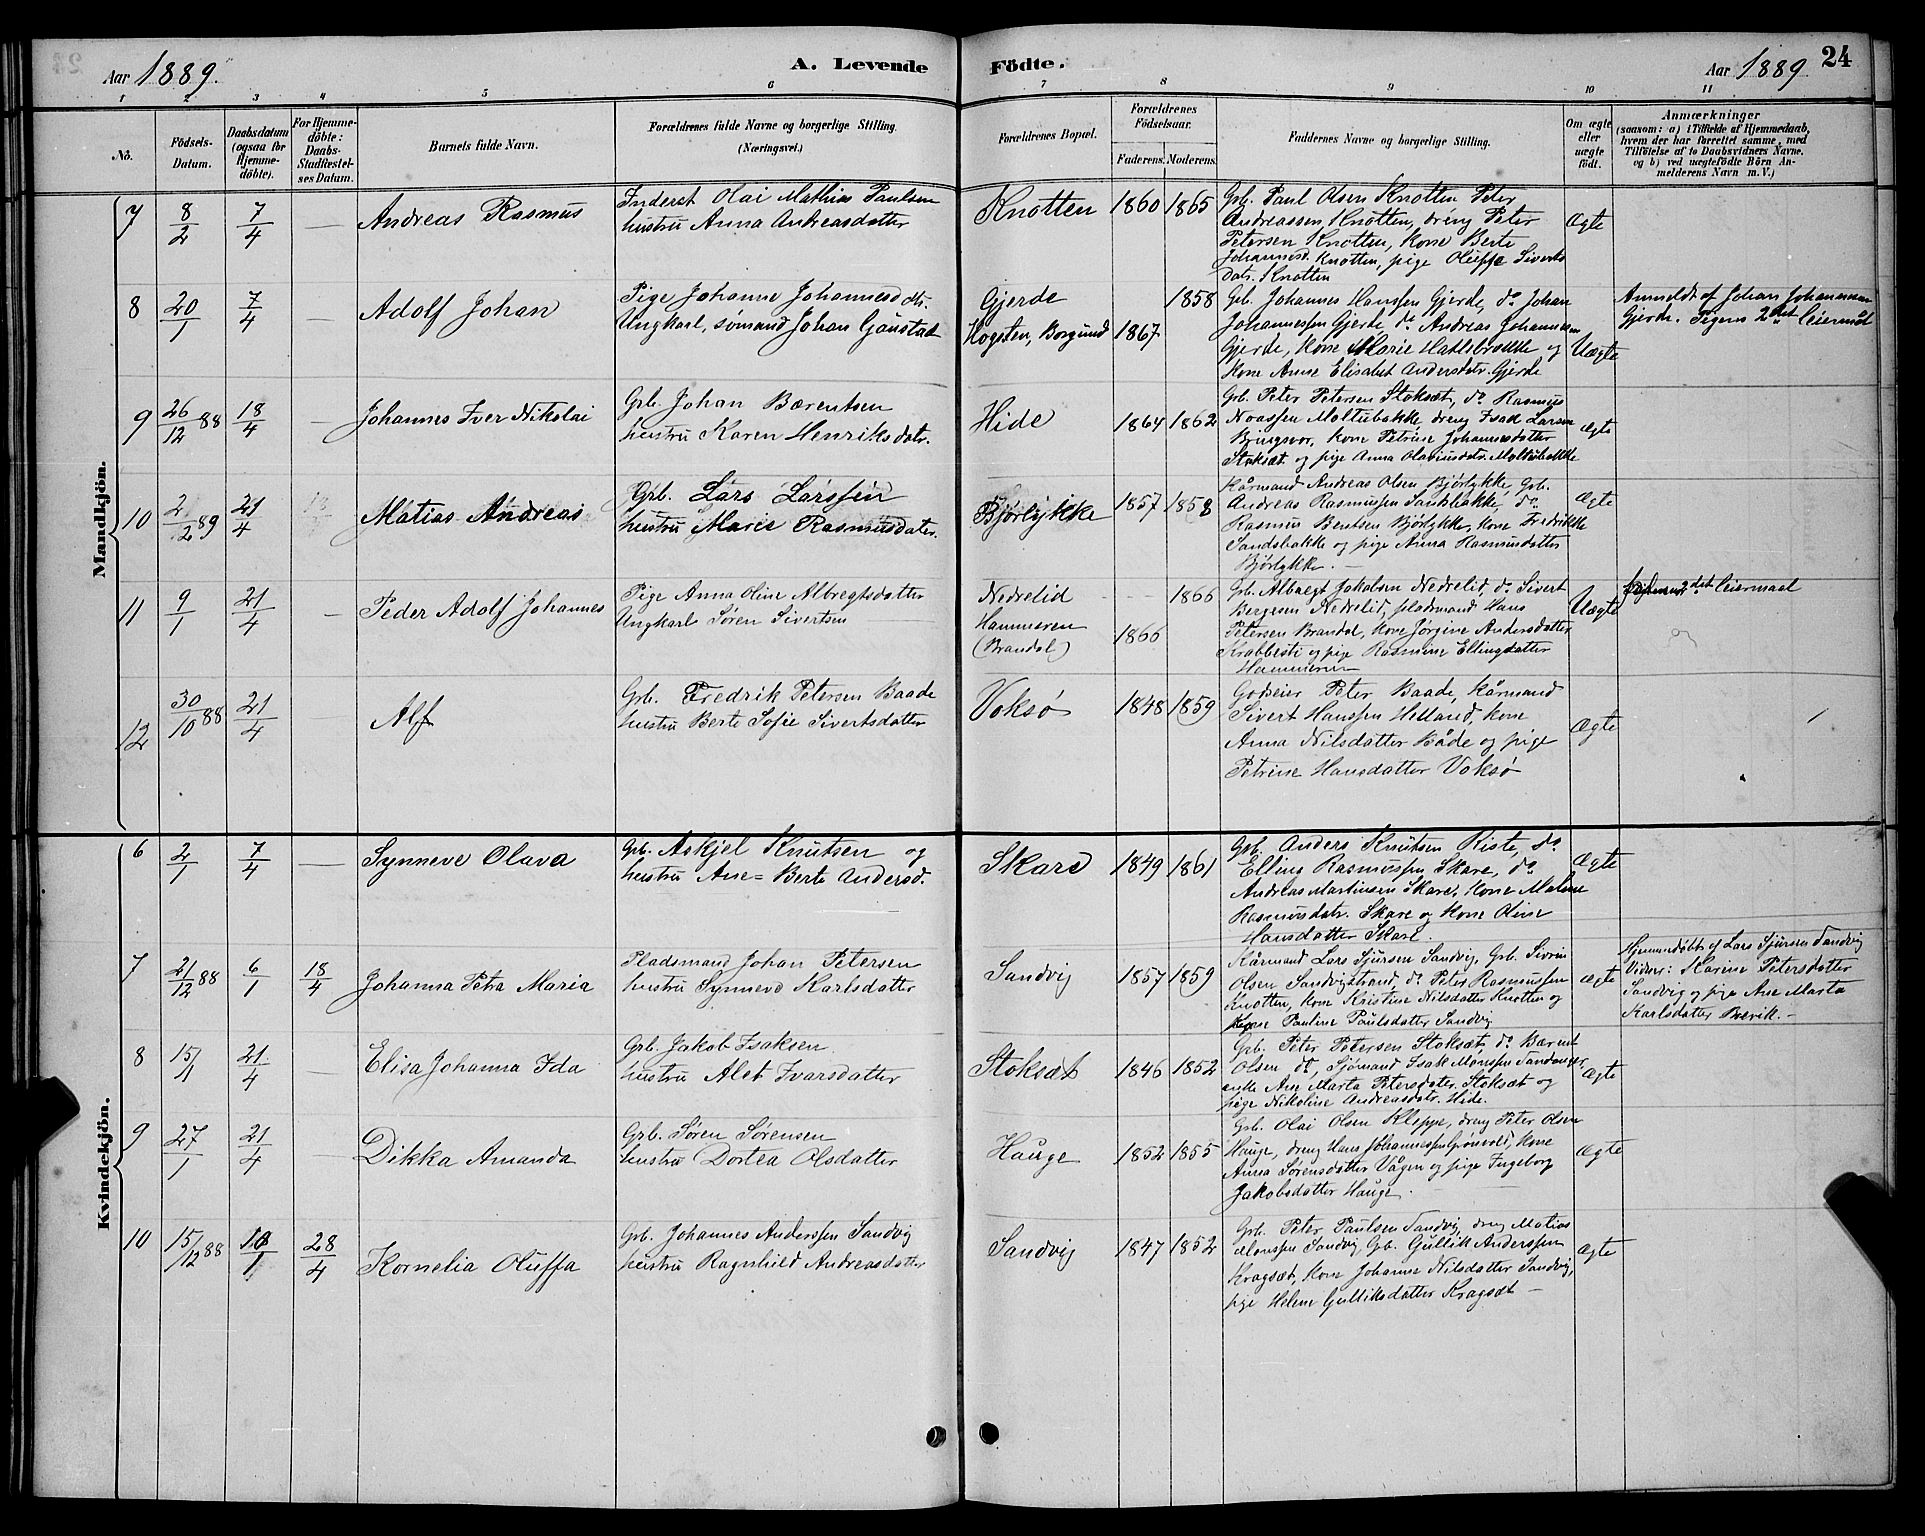 Aar 1889.
A. Levende Födte.
Aar 1889. 24
1 2 3 4 5 6 7 8 9 10 11
No.
Födsels-Datum.
Daabsdatum (ogsaa for Hjemmedöbte).
For Hjemmedöbte: Daabs-Stadfæstelses Datum.
Barnets fulde Navn.
Forældrenes fulde Navne og borgerlige Stilling. (Næringsvei.)
Forældrenes Bopæl.
Forældrenes Födselsaar.
Faderens. Moderens.
Faddernes Navne og borgerlige Stilling.
Om ægte eller uægte født.
Anmærkninger
(saasom: a) i Tilfælde af Hjemmedaab,
hvem der har forrettet samme, med
Tilföielse af to Daabsvidners Navne,
og b) ved uægtefödte Börn Anmelderens Navn m. V.)
Mandkjön.
7 8/2 7/4 — Andreas Rasmus
Inderst Olai Mathias Paulsen
hustru Anna Andreasdatter
Knotten 1860 1865
Grb. Paul Olsen Knotten Peter
Andreassen Knotten, dreng Peter
Petersen Knotten, kone Berte
Johannesd. Knotten, pige Oluffa Siverts
datr. Knotten
Ægte
8 20/1 7/4 — Adolf Johan
Pige Johanne Johannesdtr.
Ungkarl, sømand Johan Gånstad
Gjerde 1858
Hogsten, Borgund 1867
Grb. Johannes Hanssen Gjerde, do Johan
Johannessen Gjerde, do Andreas Johannessen
Gjerde, kone Marie Hatlebrække og
kone Anne Elisabet Andersdatr. Gjerde
Uægte
Anmeldt af Johan Johannessen
Gjerde. Pigens 2det Leiermål
9 26/12 88 18/4 — Johannes Iver Nikolai
Grb. Johan Bærentsen
hustru Karen Henriksdatr.
Hide 1864 1862
Grb. Peter Petersen Stoksæt, do Rasmus
Noassen Moltubakke, dreng Isak Larsen
kone Petrine Johannesdatter
Stoksæt og pige Anna Olaviusdatr. Moltubakke
Ægte
10 2/2 89 21/4 Matias Andreas
Grb. Lars Larssen
hustru Marie Rasmusdater.
Bjørlykke 1857 1858
Kårmand Andreas Olsen Bjørlykke, Grb.
Andreas Rasmussen Sandsbakke, do
Rasmus Bentsen Bjørlykke, kone Fredrikke
Sandsbakke og pige Anna Rasmusdatter
Bjørlykke. —
Ægte
11 9/1 21/4 — Peder Adolf Johannes
Pige Anna Oline Albregtsdatter
Ungkarl Søren Sivertsen
Nedrelid 1866
Hammeren
(Brandal) 1866
Grb. Albregt Jakobsen Nedrelid, do Sivert
Bergesen Nedrelid, pladsmand Hans
Petersen Brandal, kone Jørgine Andersdatter
Krabbesti og pige Rasmine Ellingsdatter
Hammeren
Uægte
2det Leiermaal
12 30/10 88 21/4 Alf
Grb. Fredrik Petersen Baade
hustru Berte Sofie Sivertsdatter
Voksø 1848 1859
Godseier Peter Baade, kårmand
Sivert Hanssen Helland, kone
Anna Nilsdatter Både og pige
Petrine Hansdatter Voksø
Ægte
Kvindekjön.
6 2/1 7/4 — Synneve Olava
Grb. Askjel Knutsen og
hustru Ane= Berte Andersd.
Skare 1849 1861
Grb. Anders Knutsen Riste, do
Elling Rasmussen Skare, do
Andreas Martinsen Skare, kone Malene
Rasmusdatr. Skare og kone Oline
Hansdatter Skare.
Ægte
7 21/12 88 6/1 18/4 Johanna Petra Maria
Pladsmand Johan Petersen
hustru Synneve Karlsdatter
Sandvig 1857 1859
Kårmand Lars Sjursen Sandvig, Grb. Sivrin
Olsen Sandvigstrand, do Peter Rasmussen
Knotten, kone Kristine Nilsdatter Knotten og
kone Pauline Paulsdatter Sandvig
Ægte
Hjemmedøbt af Lars Sjursen Sandvig
Vidner: Karine Petersdatter
Sandvig og pige Ane Marta
Karlsdatter Brevik. —
8 15/1 21/4 — Elisa Johanna Ida
Grb. Jakob Isaksen
hustru Alet Ivarsdatter
Stoksæt 1846 1852
Grb. Peter Petersen Stoksæt, do Bærent
Olsen do, Sjømand Isak Monssen Sandanger,
enke Ane Marta Petersdater. Stoksæt og
pige Nikoline Andreasdatr. Hide.
Ægte
9 27/1 21/4 Dikka Amanda
Grb. Søren Sørensen
hustru Dortea Olsdatter
Hauge 1852 1855
Grb. Olai Olsen Kleppe, dreng Peter Olsen
Hauge, dreng Hans Johannessen Grønvold, kone
Anna Sørensdatter Vågen og pige Ingeborg
Jakobsdatter Hauge.
Ægte
10 15/12 88 28/4 Kornelia Oluffa
Grb. Johannes Anderssen Sandvig
hustru Ragnhild Andreasdatter
Sandvig 1847 1852
Grb. Peter Paulsen Sandvig, dreng Matias
Monssen Sandvig, Grb. Gullik Anderssen
Kragsæt, kone Johanne Nilsdatter Sandvig,
pige Helene Gulliksdatter Kragsæt —
Ægte